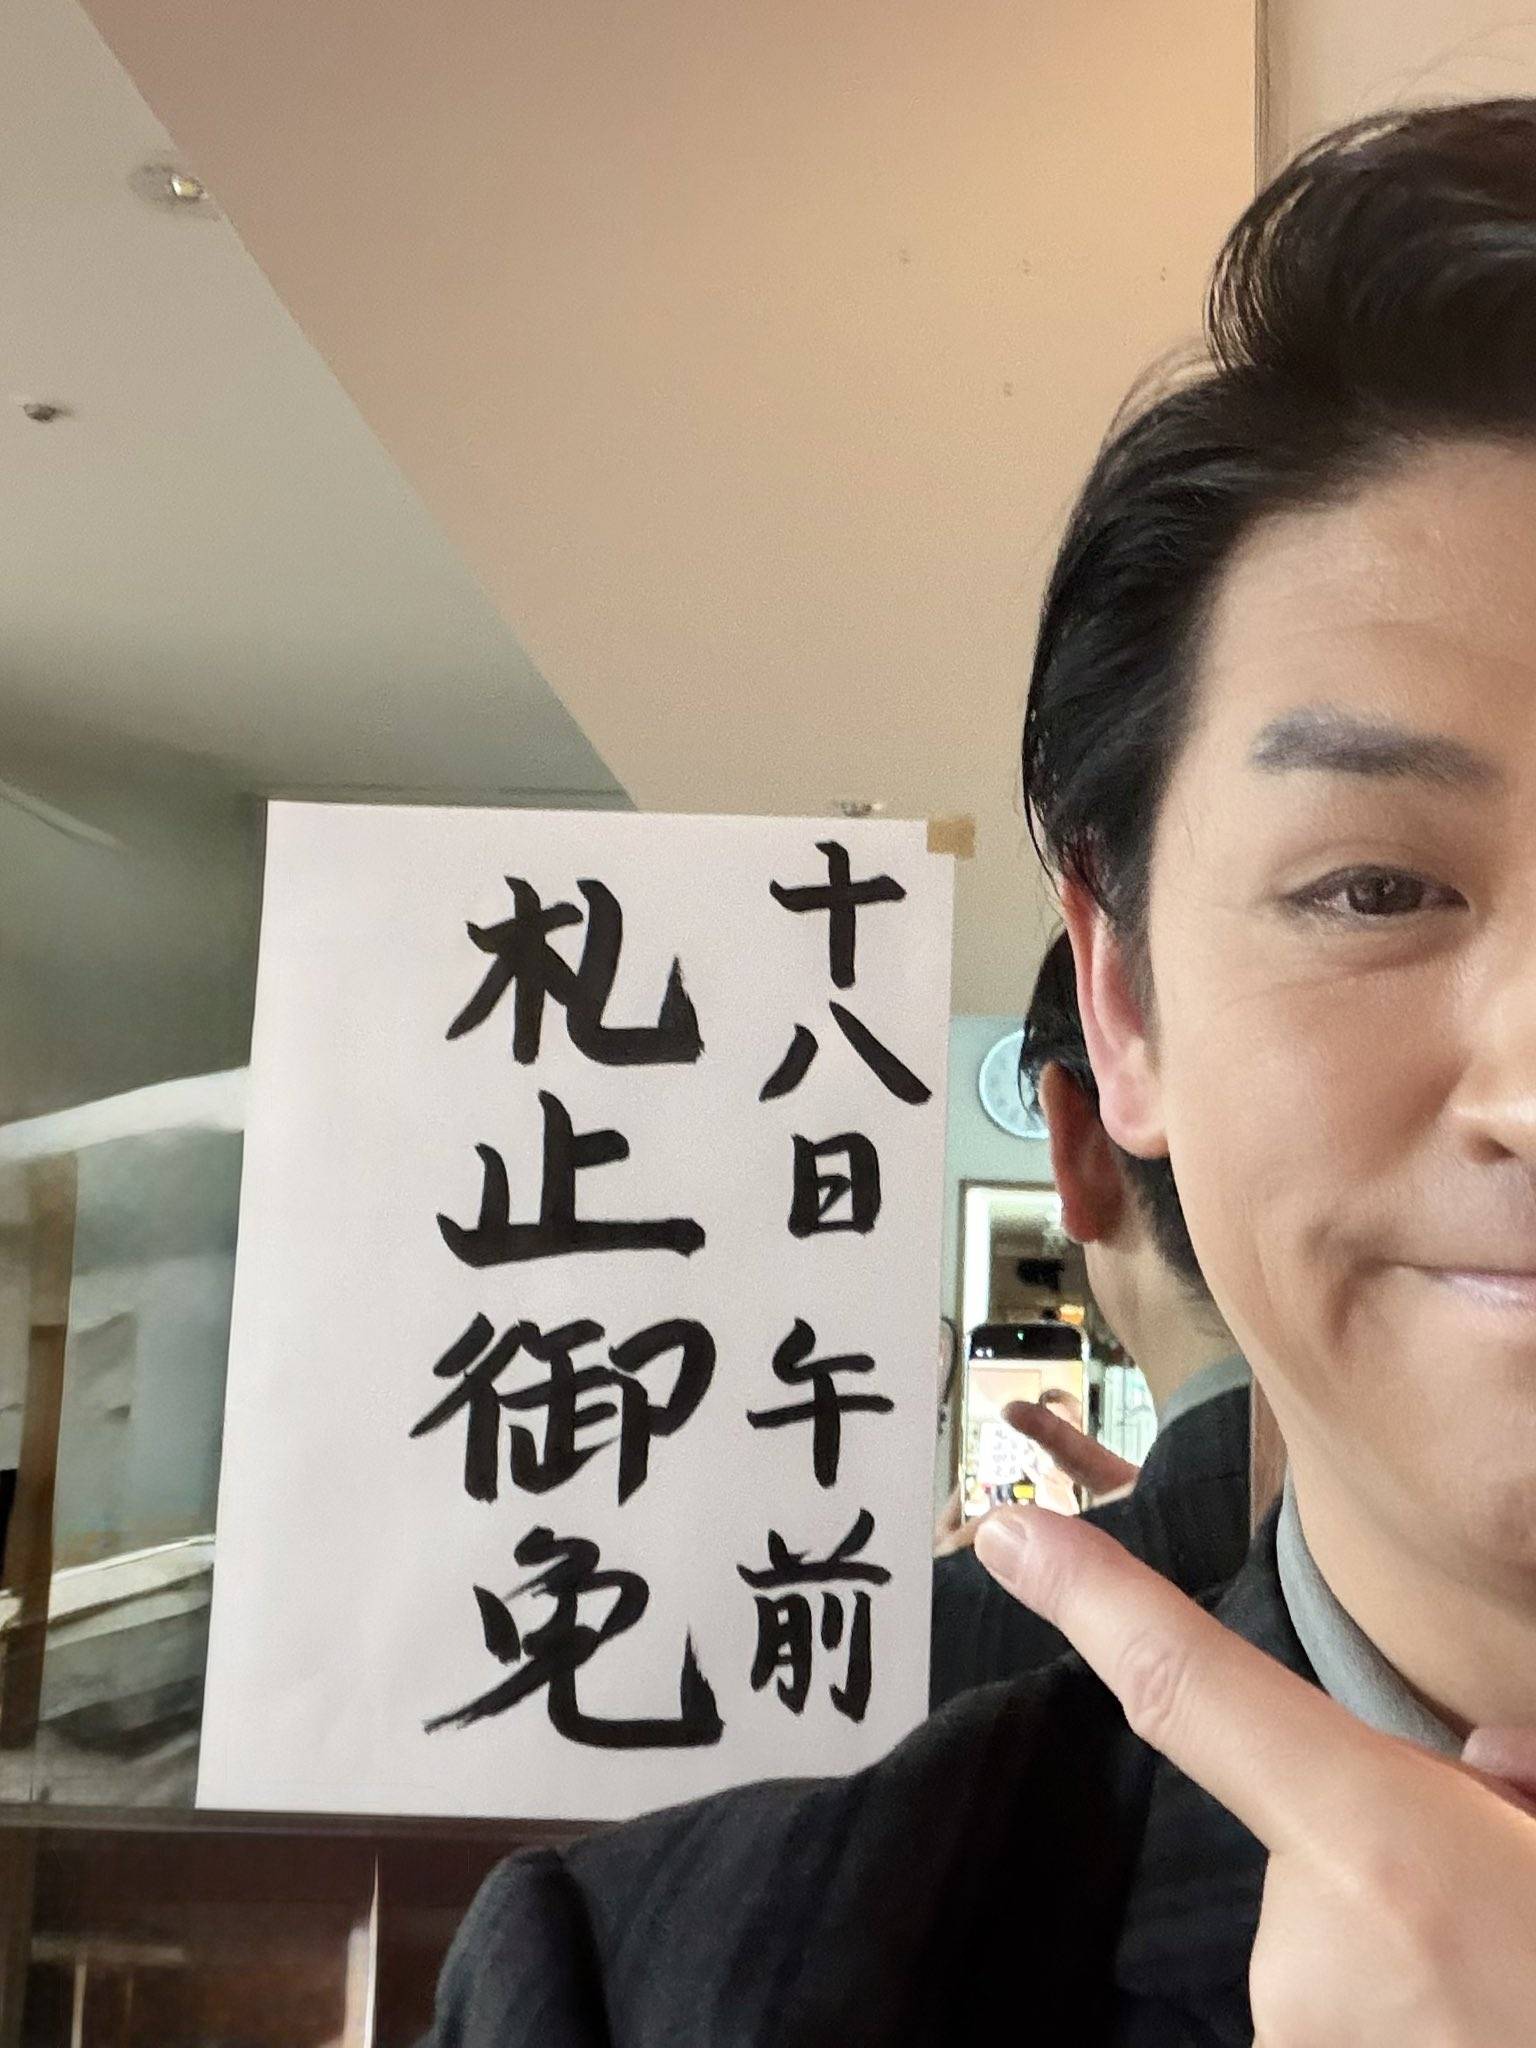 十八日午前
札止御免